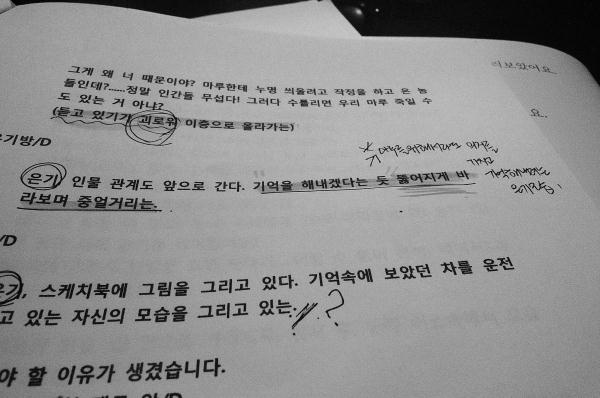 그게 왜 너 때문이야? 마루한테 누명 씌울려고 작정을 하고 온 놈
들인데?......정말 인간들 무섭다! 그러다 수틀리면 우리 마루 죽일 수
도 있는 거 아냐?
(듣고 있기가 괴로워 이층으로 올라가는)
러보았어요.
요.
은기방/D
은기, 인물 관계도 앞으로 간다. 기억을 해내겠다는 듯 뚫어지게 바
라보며 중얼거리는.
/D
은기, 스케치북에 그림을 그리고 있다. 기억속에 보았던 차를 운전
고 있는 자신의 모습을 그리고 있는.
?
야 할 이유가 생겼습니다.